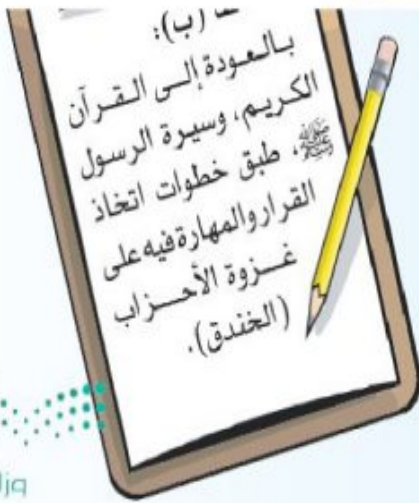 (ب):
بالعودة إلى القرآن
الكريم، وسيرة الرسول
ﷺ، طبق خطوات اتخاذ
القرار والمهارة فيه على
غزوة الأحزاب
(الخندق).